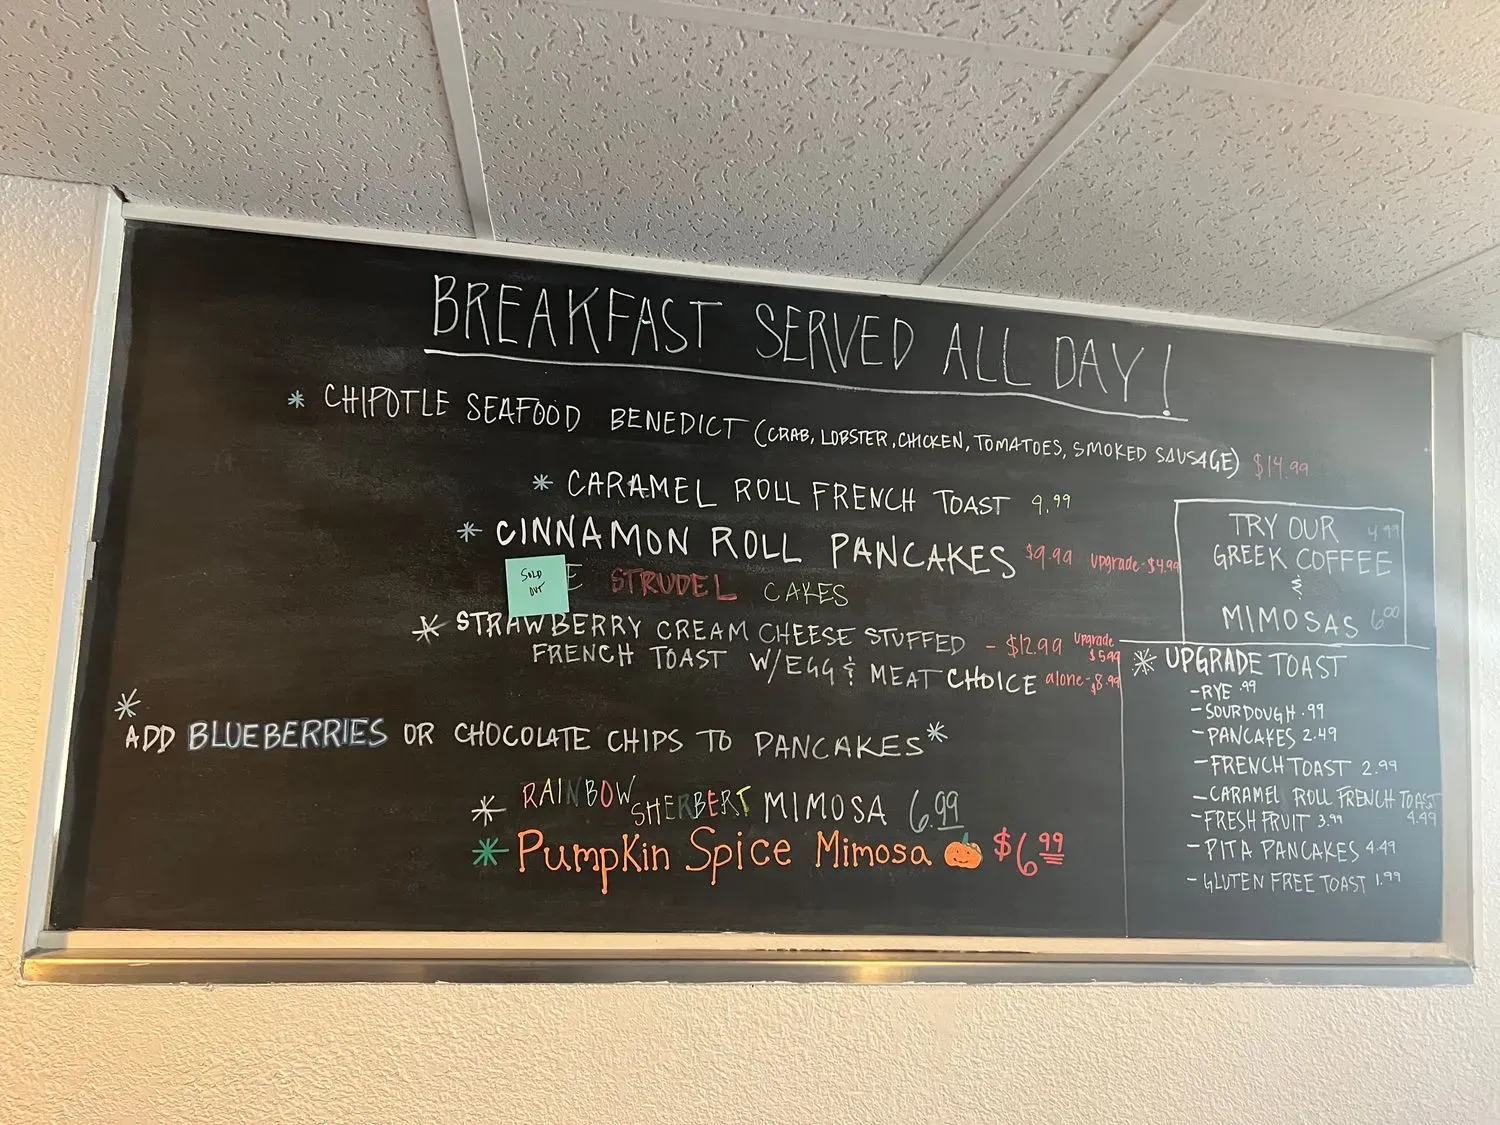 BREAKFAST SERVED ALL DAY!
* CHIPOTLE SEAFOOD BENEDICT (CRAB, LOBSTER, CHICKEN, TOMATOES, SMOKED SAUSAGE) $14.99
* CARAMEL ROLL FRENCH TOAST 9.99
* CINNAMON ROLL PANCAKES $9.99 upgrade-$4.99
SOLD
OUT
E STRUDEL CAKES
* STRAWBERRY CREAM CHEESE STUFFED - $12.99 upgrade $5.99
FRENCH TOAST W/EGG & MEAT CHOICE alone-$8.99
*
ADD BLUEBERRIES OR CHOCOLATE CHIPS TO PANCAKES*
* RAINBOW SHERBERT MIMOSA 6.99
* Pumpkin Spice Mimosa $6.99
TRY OUR 4.99
GREEK COFFEE
&
MIMOSAS 6.00
* UPGRADE TOAST
- RYE .99
- SOURDOUGH .99
- PANCAKES 2.49
- FRENCH TOAST 2.99
- CARAMEL ROLL FRENCH TOAST 4.49
- FRESH FRUIT 3.99
- PITA PANCAKES 4.49
- GLUTEN FREE TOAST 1.99